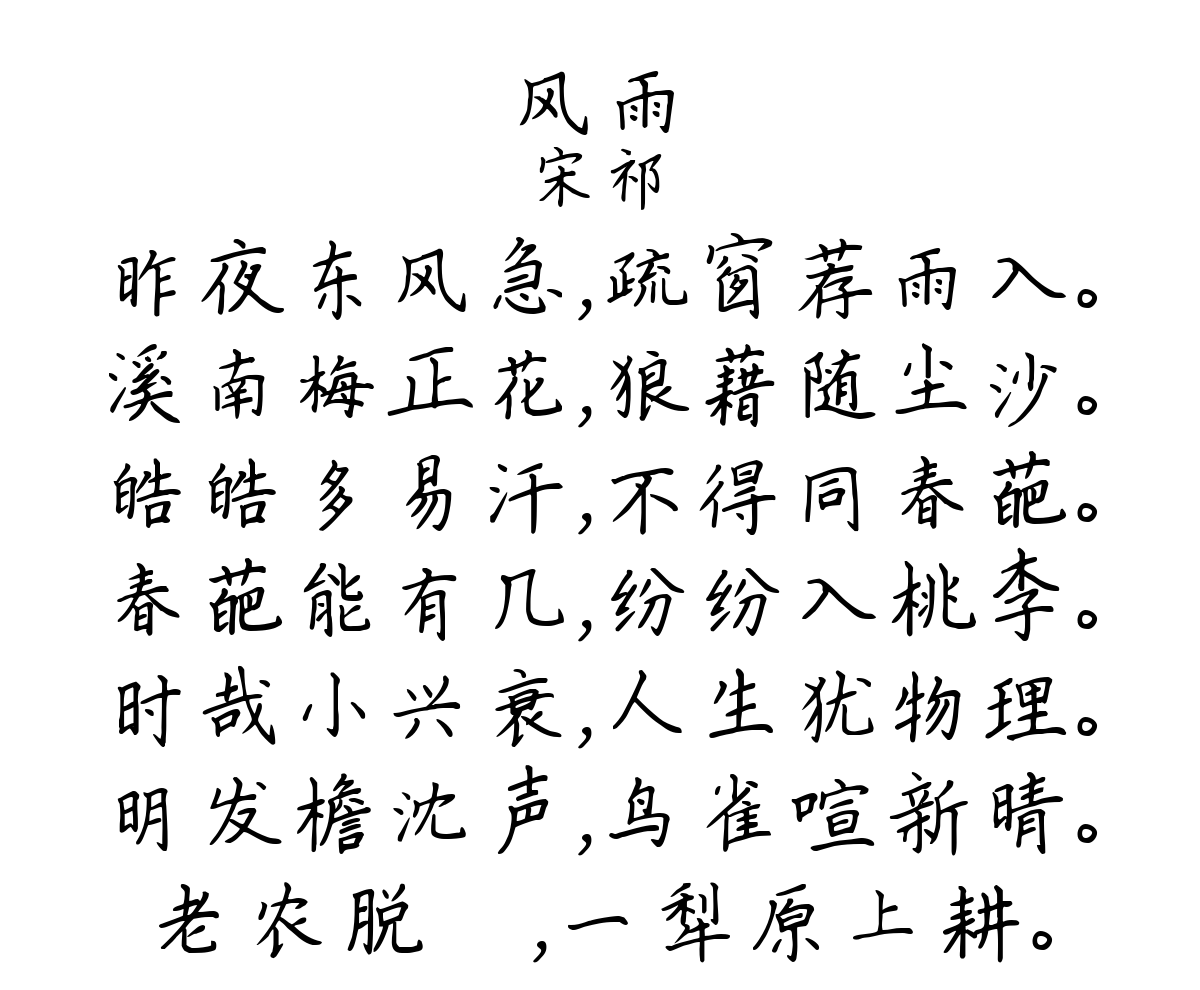 风雨
宋祁
昨夜东风急,疏窗荐雨入。
溪南梅正花,狼藉随尘沙。
皓皓多易汗,不得同春葩。
春葩能有几,纷纷入桃李。
时哉小兴衰,人生犹物理。
明发檐沈声,鸟雀喧新晴。
老农脱 ,一犁原上耕。